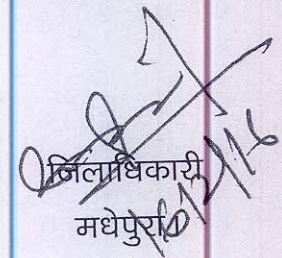 जिलाधिकारी
मधेपुरा।
16/12/16